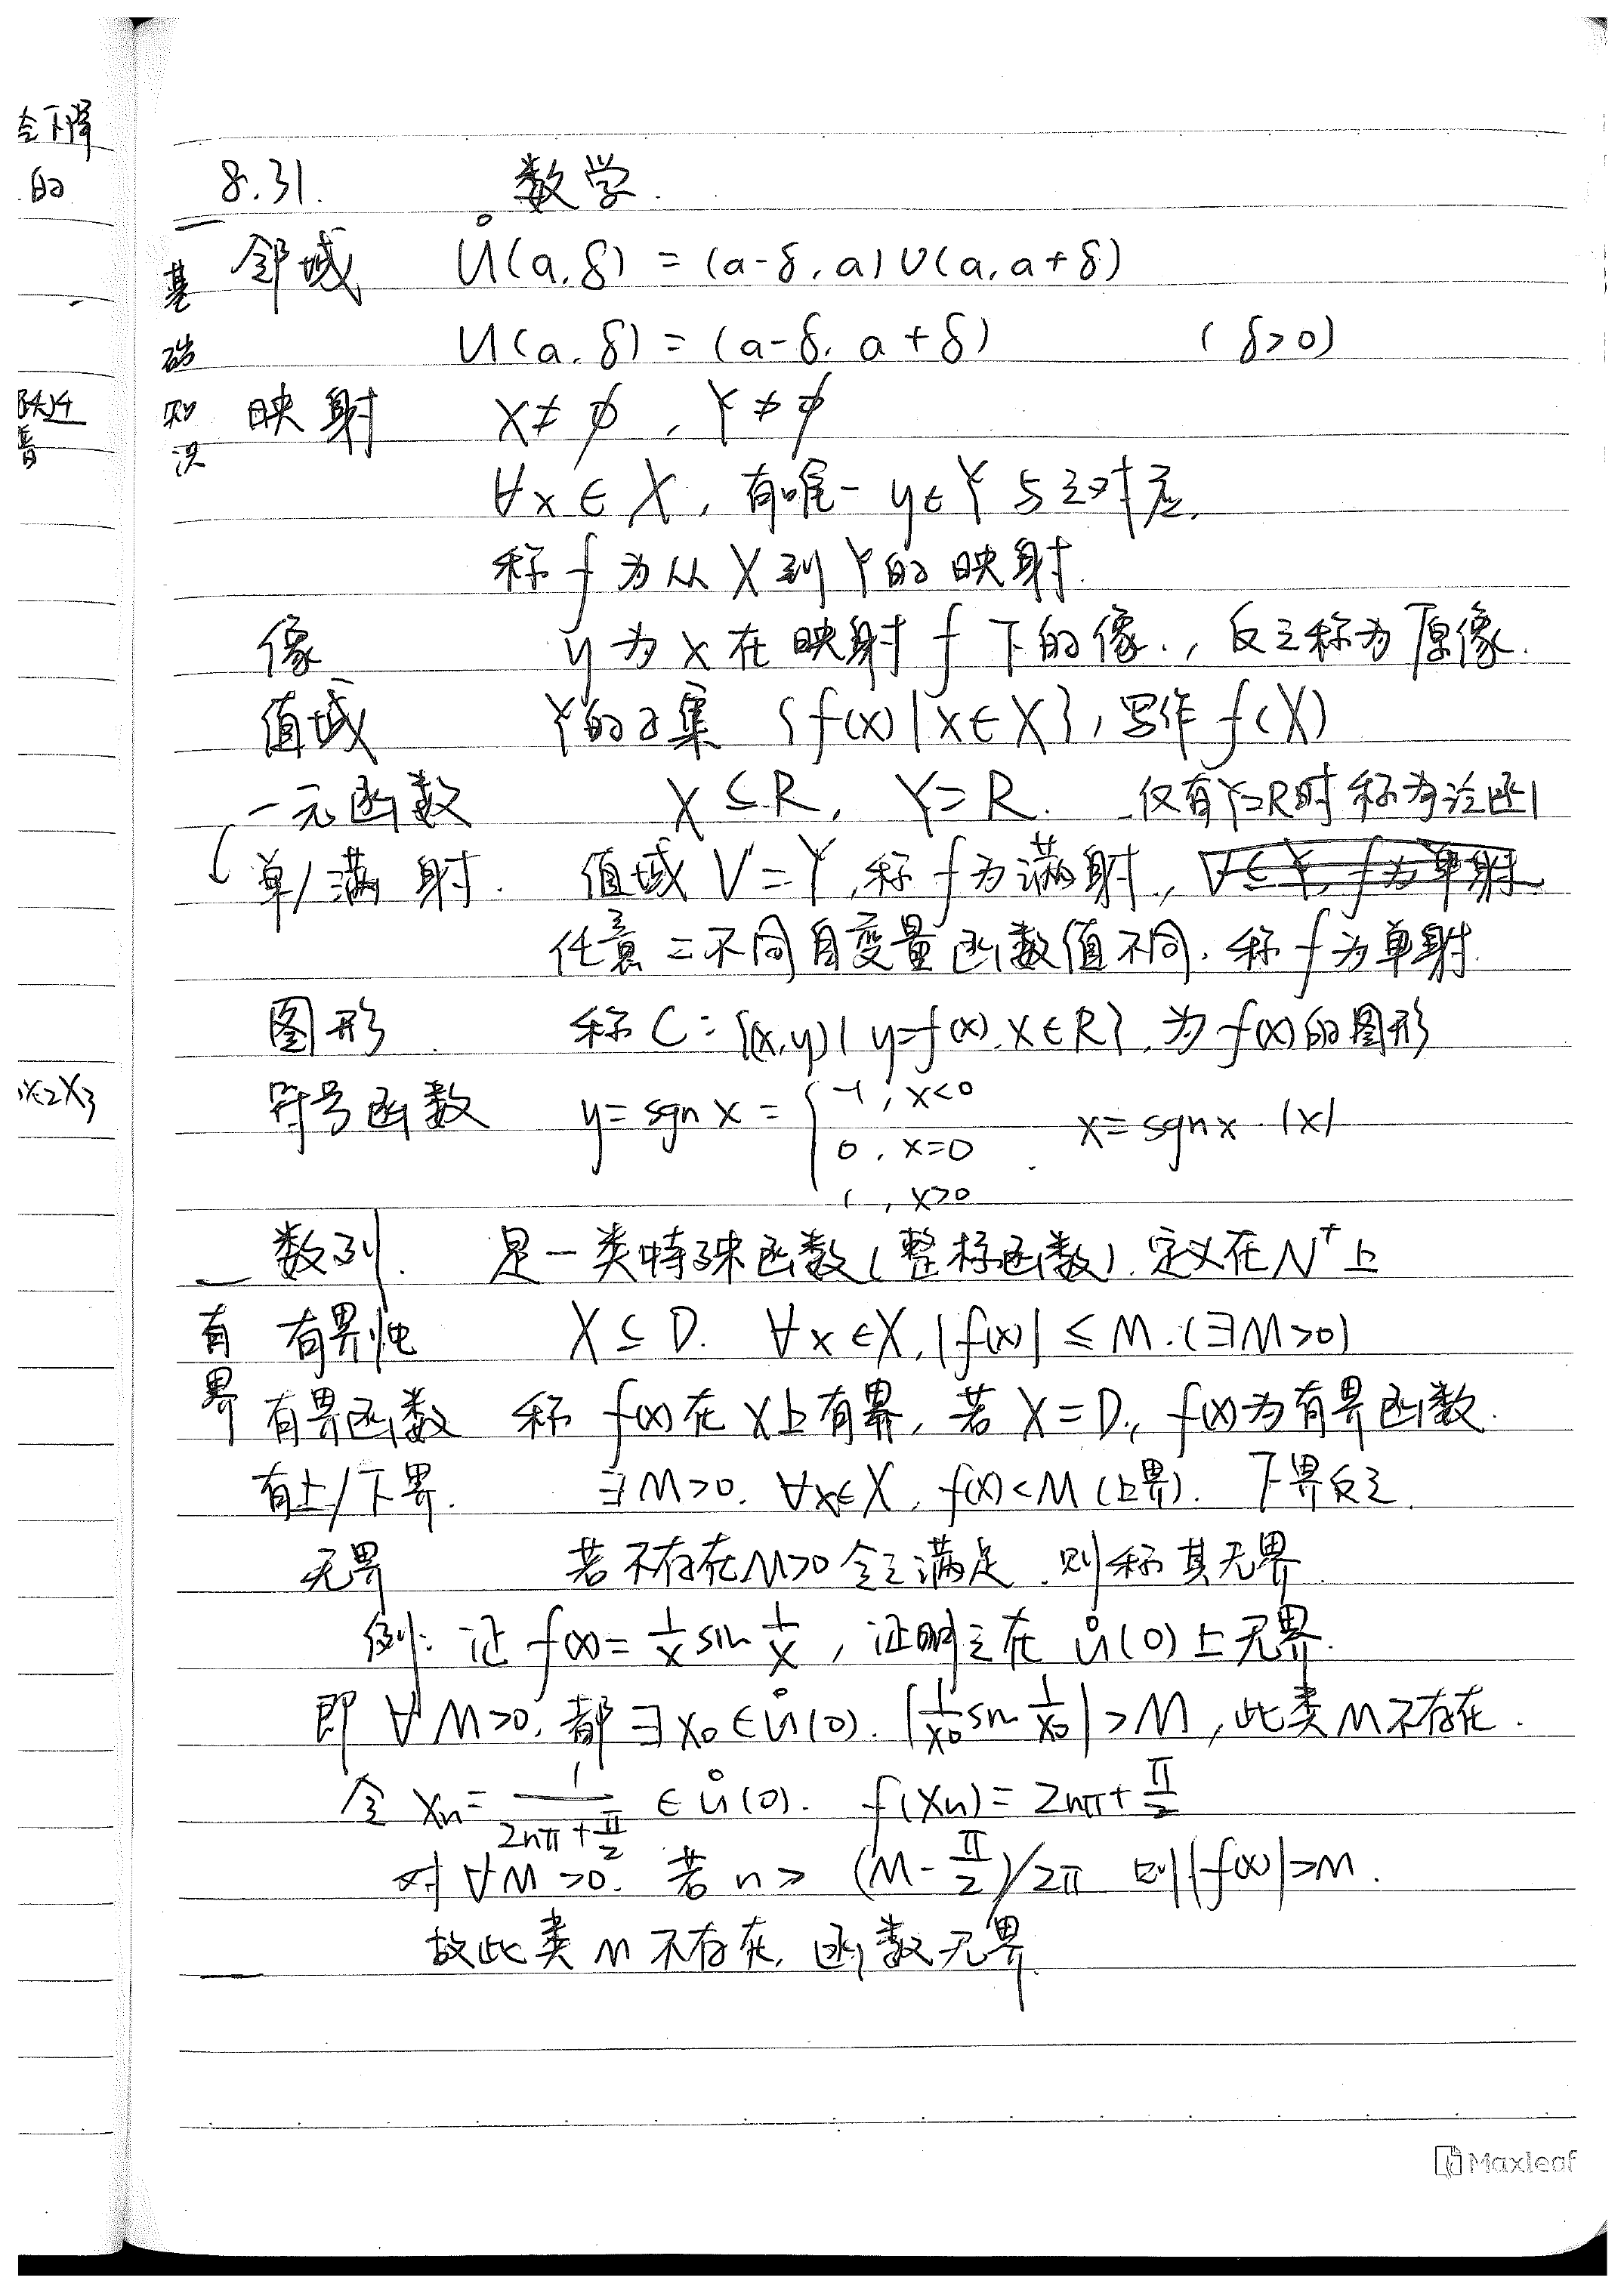 8.31. 数学.
基础知识
邻域 Ů(a,δ) = (a-δ,a)∪(a,a+δ)
U(a,δ) = (a-δ, a+δ) (δ>0)
映射 X≠∅, Y≠∅
∀x∈X, 有唯一 y∈Y 与之对应,
称 f 为从 X 到 Y 的映射.
像 y 为 x 在映射 f 下的像., 反之称为原像.
值域 Y的子集 {f(x)|x∈X}, 写作 f(X)
一元函数 X⊆R, Y=R. 仅有Y=R时称为泛函
单/满射. 值域 V=Y, 称 f 为满射, V⊆Y, f为单射
任意二不同自变量函数值不同, 称 f 为单射.
图形 称 C: {(x,y)| y=f(x), x∈R}, 为 f(x)的图形
符号函数 y = sgn x = { -1, x<0
0, x=0 x = sgnx·|x|
1, x>0
数列. 是一类特殊函数(整标函数). 定义在N⁺上
有界
有界性 X⊆D. ∀x∈X, |f(x)| ≤ M. (∃M>0)
有界函数 称 f(x)在X上有界, 若 X=D, f(x)为有界函数.
有上/下界. ∃M>0. ∀x∈X, f(x)<M (上界). 下界反之.
无界 若不存在M>0 令之满足, 则称其无界.
例: 证 f(x)= 1/x sin 1/x, 证明之在 Ů(0)上无界.
即 ∀M>0, 都∃x₀∈Ů(0). |1/x₀ sin 1/x₀|>M, 此类M不存在.
令 xₙ= 1/(2nπ+π/2) ∈Ů(0). f(xₙ)=2nπ+π/2
对∀M>0. 若 n > (M-π/2)/2π 则|f(x)|>M.
故此类M不存在, 函数无界.
会下降
的
附近
x₂x₃
Maxleaf